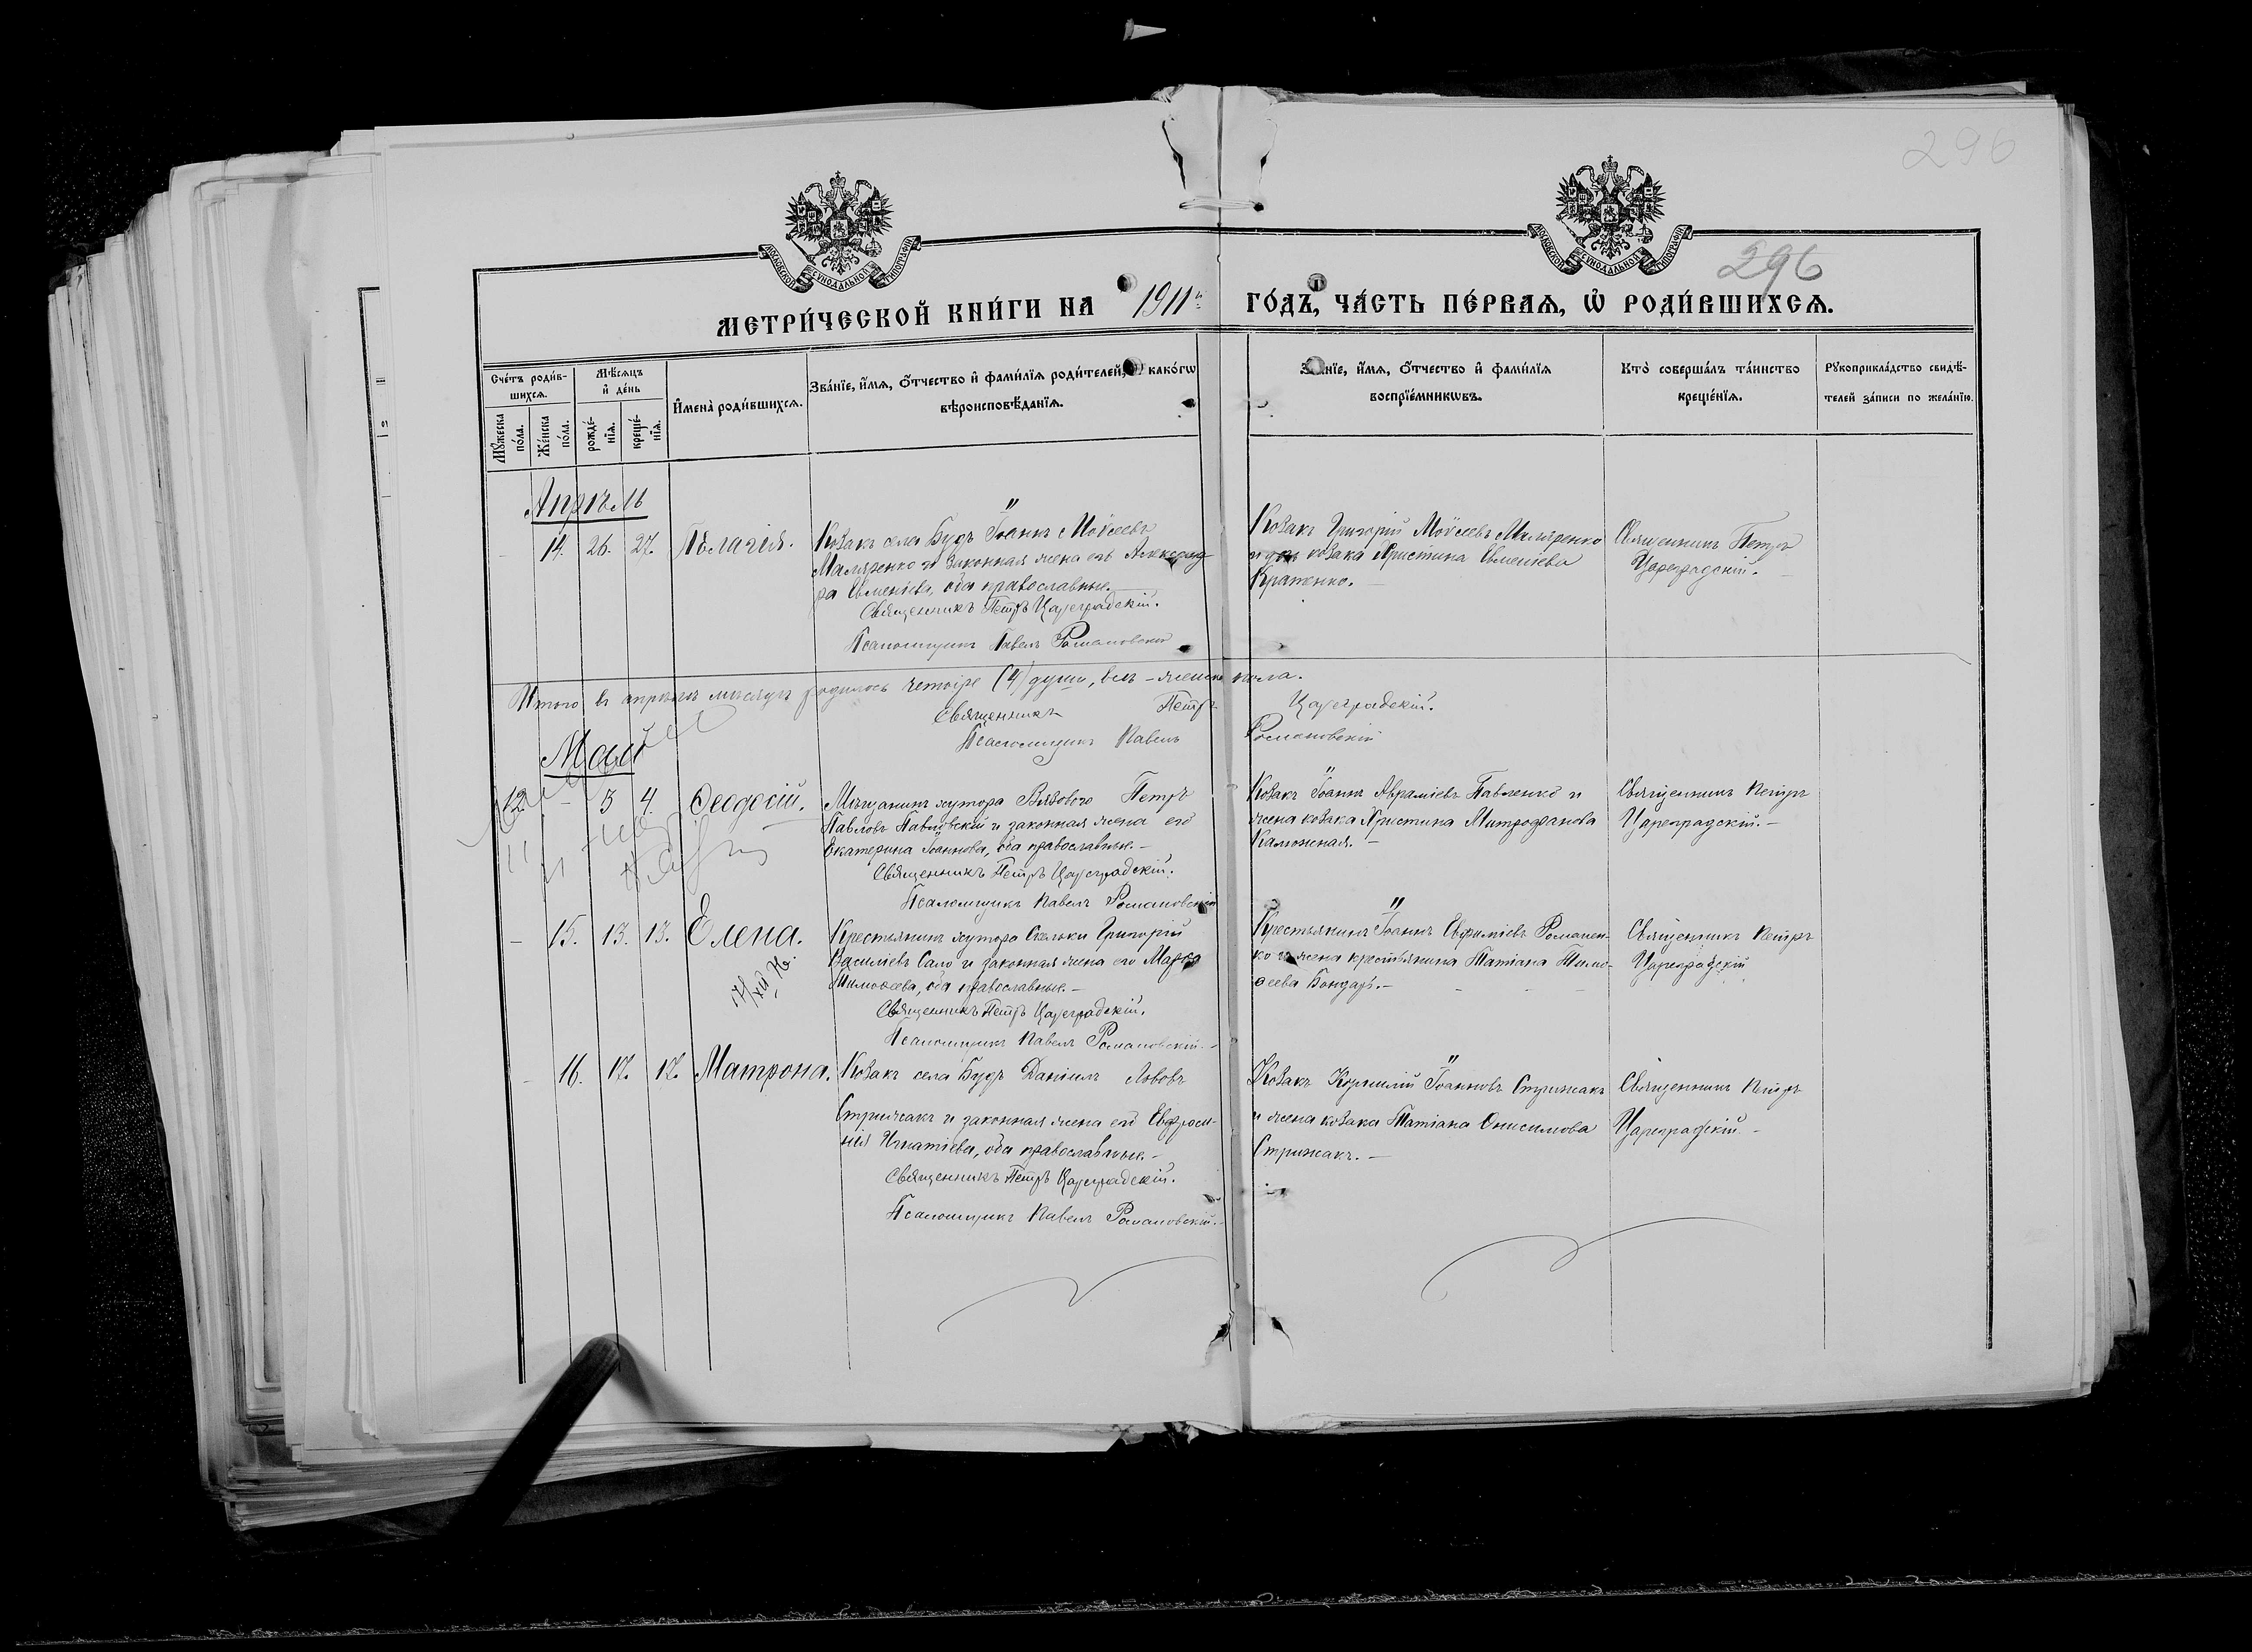 296
МОСКОВСКОЙ СѴНОДАЛЬНОЙ ТИПОГРАФІИ
МОСКОВСКОЙ СѴНОДАЛЬНОЙ ТИПОГРАФІИ
296
МЕТРИ́ЧЕСКОЙ КНИ́ГИ НА 1911й ГО́ДЪ, ЧА́СТЬ ПЕ́РВАѦ, Ѡ РОДИ́ВШИХСѦ.
Сче́тъ роди́в-
шихсѧ.
Мꙋжеска по́ла.
Же́нска по́ла.
Мѣ́сѧцъ
и де́нь
рожде́-
нїѧ.
креще́-
нїѧ.
Имена̀ роди́вшихсѧ.
Зва́нїе, и́мѧ, о́тчество и фами́лїѧ роди́телей, и како́гѡ
вѣроисповѣ́данїѧ.
Зва́нїе, и́мѧ, о́тчество и фами́лїѧ
воспрїе́мникѡвъ.
Кто̀ соверша́лъ та́инство
креще́нїѧ.
Рꙋкоприкла́дство свидѣ́-
телей за́писи по жела́нїю.
Апрѣль
14. 26. 27. Пелагія.
Козакъ села Будъ Іоаннъ Моѵсеевъ
Маляренко и законная жена его Александ-
ра Евменіева, оба православные.
Священникъ Петръ Цареградскій.
Псаломщикъ Павелъ Романовскій
Козакъ Григорій Моѵсеевъ Маляренко
козака Христина Евменіева
Священникъ Петръ
Цареградскій.
Итого въ апрѣлѣ мѣсяцѣ родилось четыре (4) души, всѣ – женска пола.
Священникъ Петръ Цареградскій.
Псаломщикъ Павелъ Романовскій
Май
12 – 3 4. Ѳеодосій.
Мѣщанинъ хутора Вязового Петръ
Павловъ Павловскій и законная жена его
Екатерина Іоаннова, оба православные. –
Священникъ Петръ Цареградскій.
Псаломщикъ Павелъ Романовскій
Козакъ Іоаннъ Авраміевъ Павленко и
жена козака Христина Митрофанова
Калюжная. –
Священникъ Петръ
Цареградскій. –
– 15. 13. 13. Елена.
Крестьянинъ хутора Скельки Григорій
Василіевъ Сало и законная жена его Марѳа
Тимоѳеева, оба православные. –
Священникъ Петръ Цареградскій.
Псаломщикъ Павелъ Романовскій. –
Крестьянинъ Іоаннъ Евфиміевъ Романен-
ко и жена крестьянина Татіана Тимо-
ѳеева Бондарь. –
Священникъ Петръ
Цареградскій
– 16. 17. 17. Матрона.
Козакъ села Будъ Даніилъ Львовъ
Стрижакъ и законная жена его Евфроси-
нія Игнатіева, оба православные. –
Священникъ Петръ Цареградскій.
Псаломщикъ Павелъ Романовскій. –
Козакъ Корнилій Іоанновъ Стрижакъ
и жена козака Татіана Онисимова
Стрижакъ. –
Священникъ Петръ
Цареградскій –